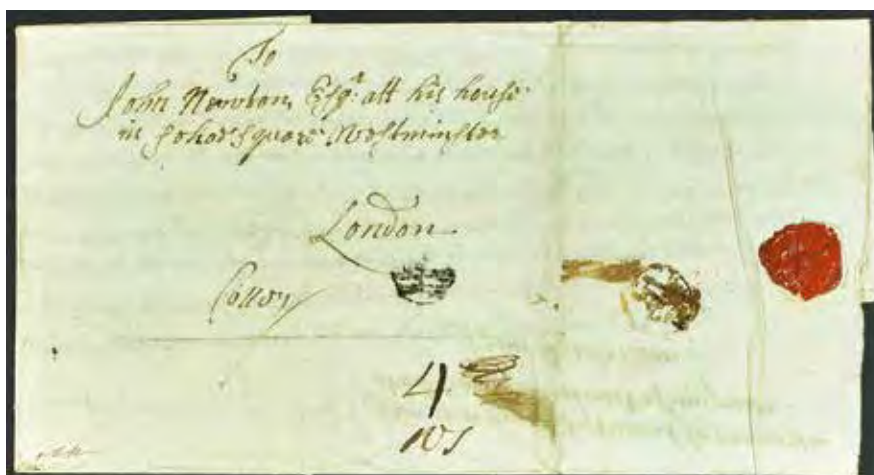 To
John Newton Esqr. att his house
in Sohoe Square Westminster
London
4